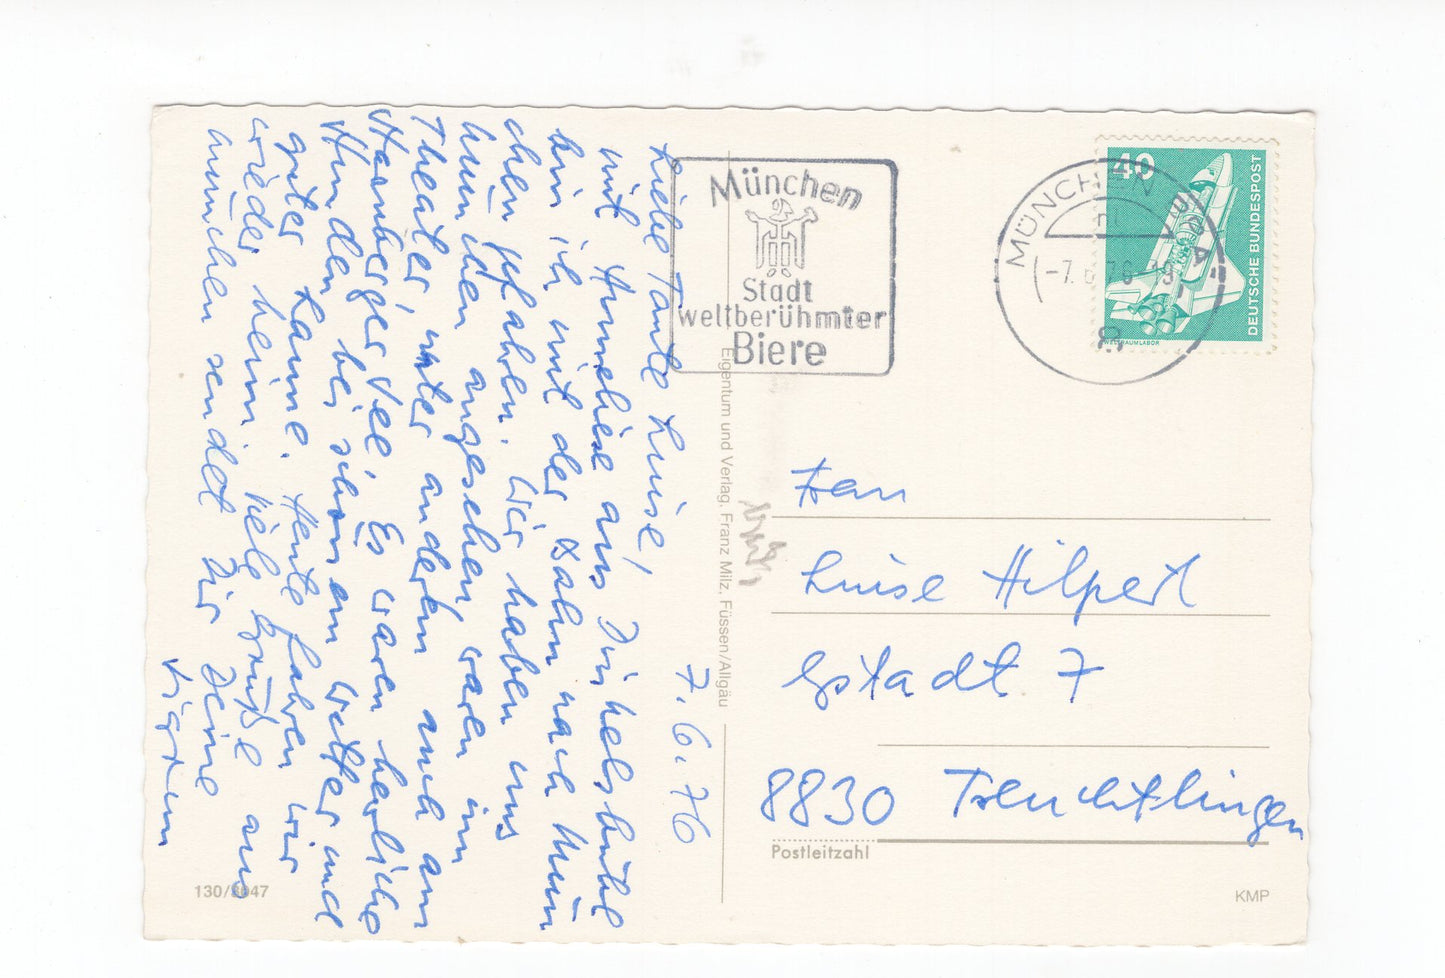 7.6.76
Liebe Tante Luise,
mit Anneliese aus Dinkelsbühl
bin ich mit der Bahn nach Mün
chen gefahren. Wir haben uns
München angesehen, waren im
Theater, unter anderem auch am
Starnberger See. Es waren herrliche
Stunden bei schönem Wetter und
guter Laune. Heute fahren wir
wieder heim. Viele Grüße aus
München sendet Dir Deine
München
Stadt
weltberühmter
Biere
MÜNCHEN
-7.6.76-19
8
40
DEUTSCHE BUNDESPOST
WELTRAUMLABOR
Eigentum und Verlag, Franz Milz, Füssen/Allgäu
Frau
Luise Hilpert
Gstadt 7
8830 Treuchtlingen
Postleitzahl
130/8047
KMP